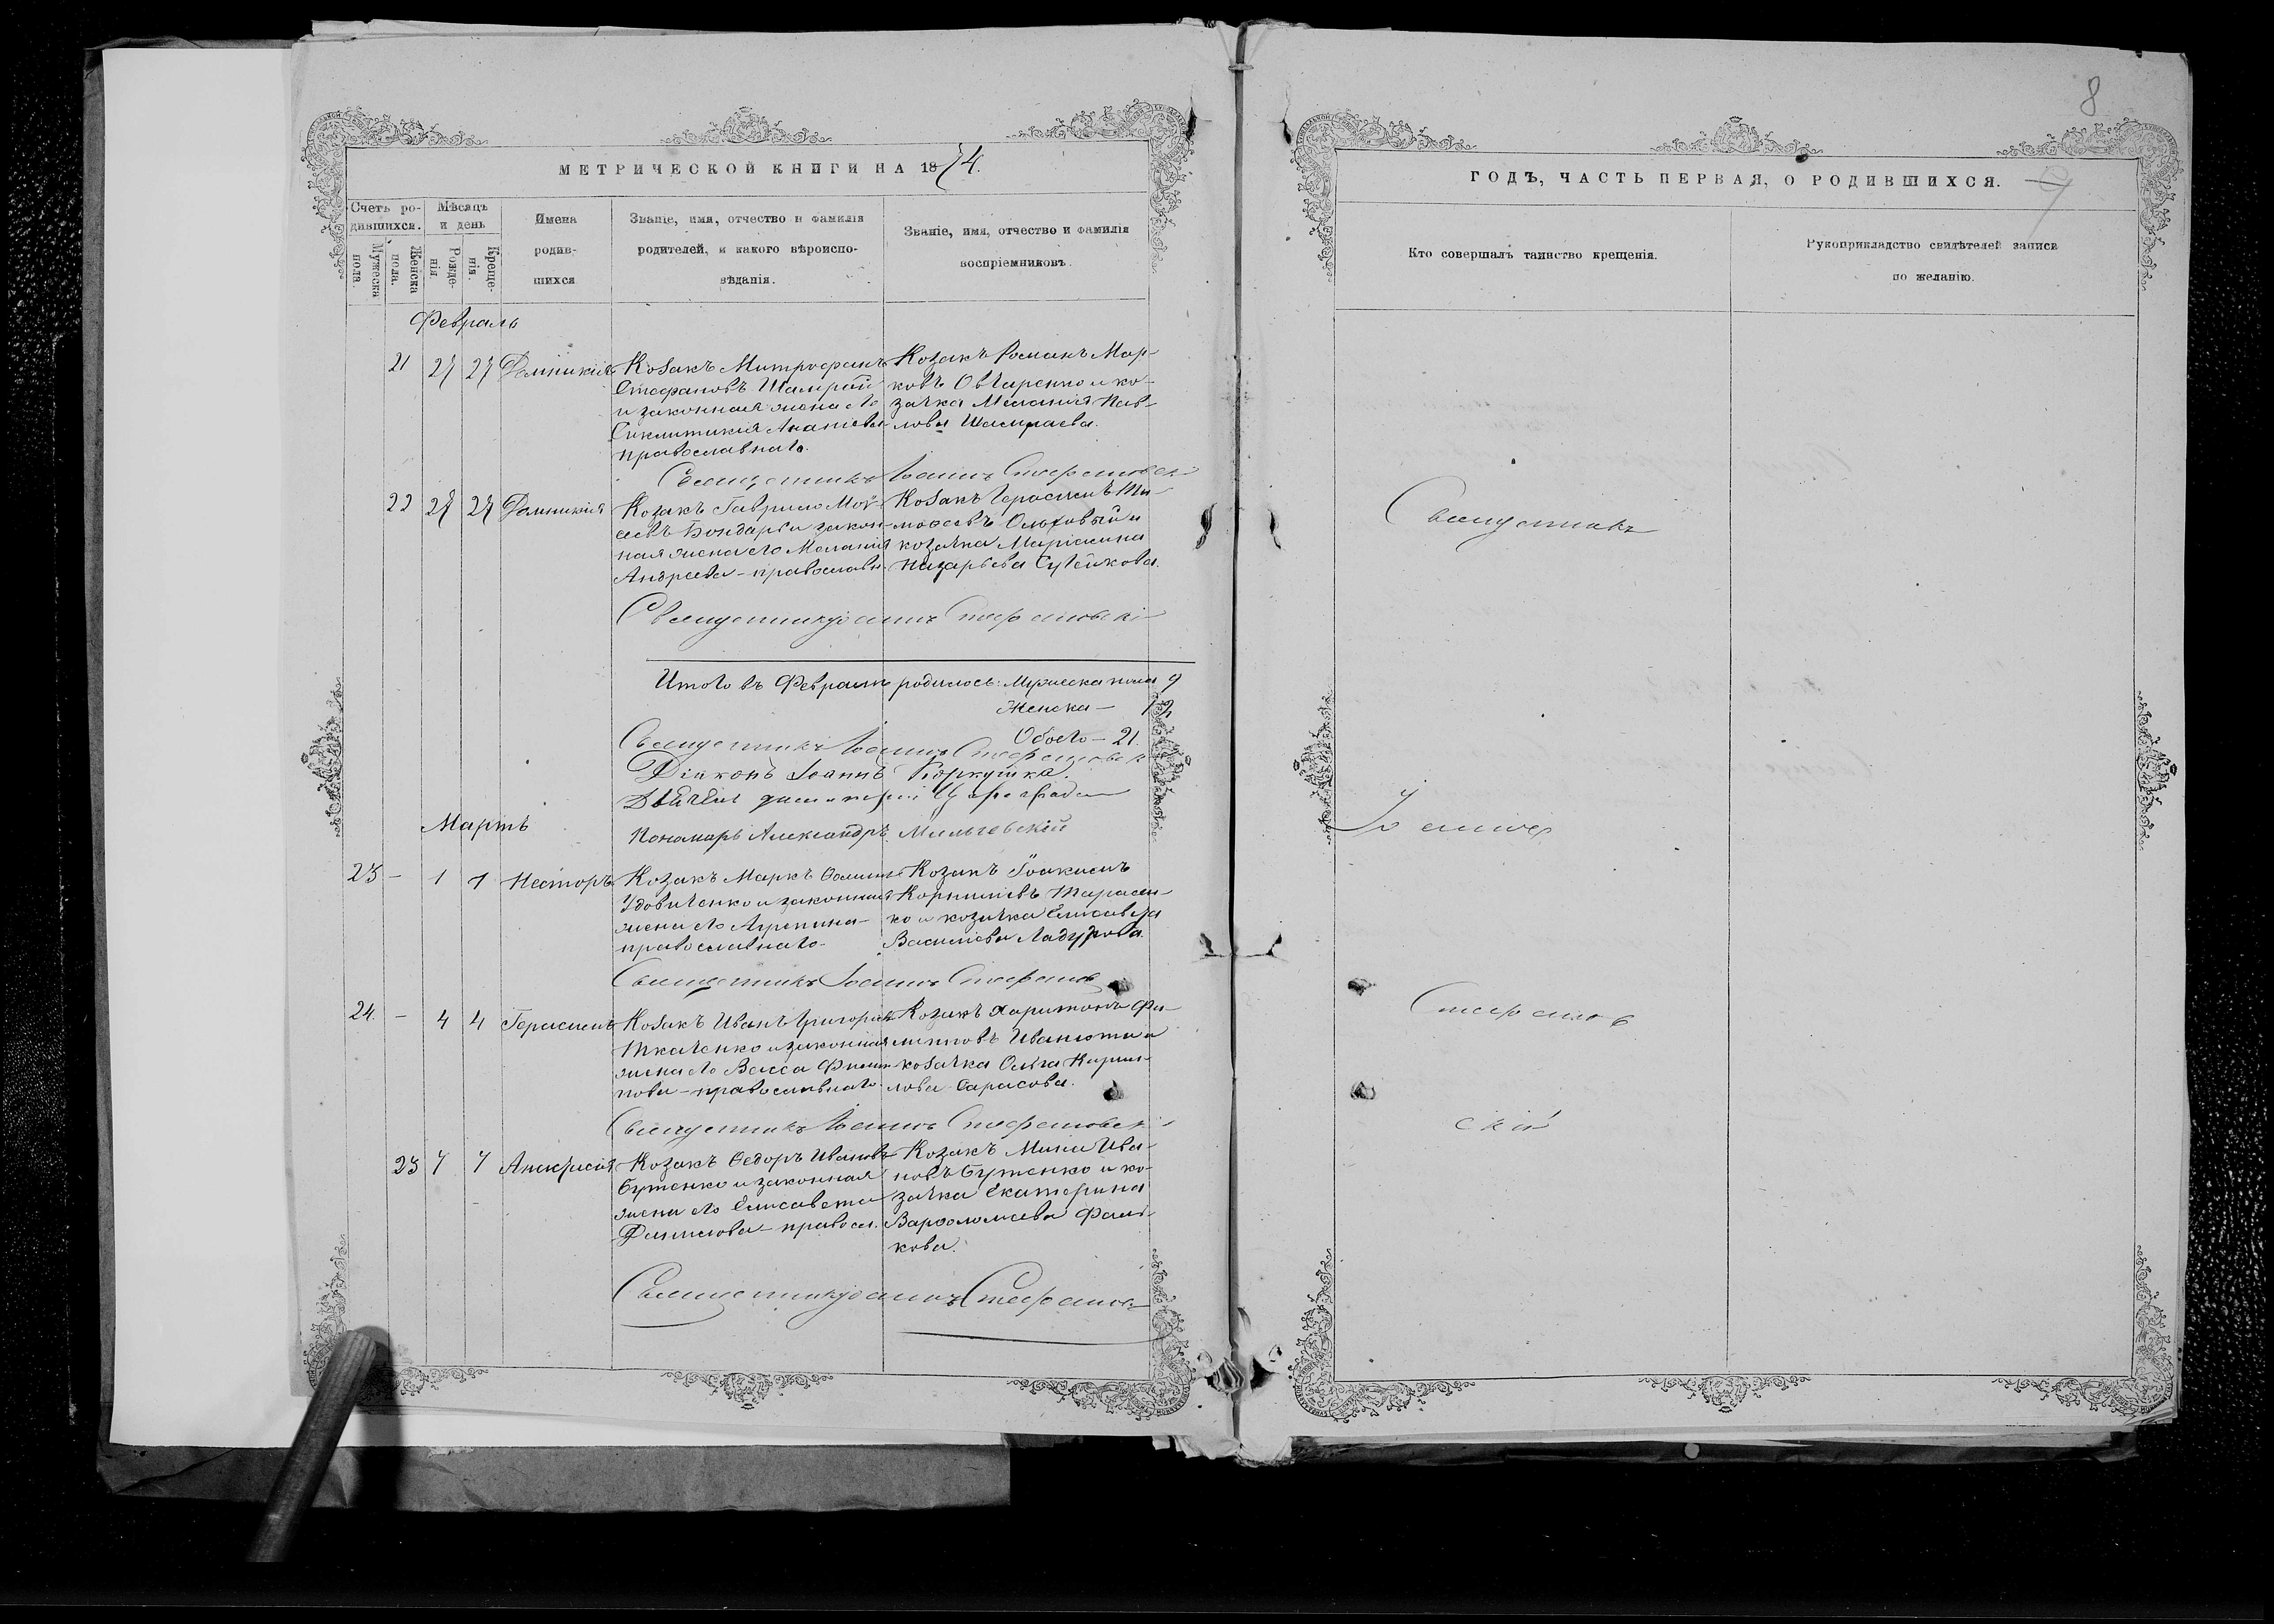 8
МЕТРИЧЕСКОЙ КНИГИ НА 1874.
Счетъ ро-
дившихся.
Мужеска
пола.
Женска
пола.
Мѣсяцъ
и день
Рожде-
нія.
Креще-
нія.
Имена
родив-
шихся
Званіе, имя, отчество и фамилія
родителей, и какого вѣроиспо-
вѣданія.
Званіе, имя, отчество и фамилія
воспріемниковъ.
Февраль
21 27 27 Домникія
Козакъ Митрофанъ
Стефановъ Шамрай
и законная жена его
Синклитикія Ананіева
православнаго.
Козакъ Романъ Мар-
ковъ Овчаренко и ко-
зачка Меланія Пав-
лова Шамраева.
Священникъ Іоаннъ Стефановскі
22 27 27 Домникія
Козакъ Гаврило Мой-
сеевъ Бондарь и закон-
ная жена его Меланія
Андреева - православн.
Козакъ Герасимъ Ти-
мофеевъ Ольховый и
козачка Маріамна
Назарьева
Священникъ Іоаннъ Стефановскі
Итого въ Февралѣ родилось: Мужеска пола 9
Женска — 12
Обоего — 21.
Священникъ Іоаннъ Стефановск
Діаконъ Іоаннъ Коркушка.
Пономарь Александръ Мильгевскій
Мартъ
23 - 1 1 Несторъ
Козакъ Маркъ Ѳоминъ
Удовиченко и законная
жена его Агрипина
православнаго.
Козакъ Іоакимъ
Корниліевъ Тарасен-
ко и козачка Елисавета
Василіева
Священникъ Іоаннъ Стефанов
24. - 4 4 Герасимъ
Козакъ Иванъ Григорьев
Ткаченко и законная
жена его Васса Филип-
пова - православнаго.
Козакъ Харитонъ Фи-
липповъ Иванюта и
козачка Ольга Кирил-
лова Сарасова.
Священникъ Іоаннъ Стефановск
23 7 7 Анастасія
Козакъ Ѳедоръ Ивановъ
Бутенко и законная
жена его Елисавета
Данилова - правосл.
Козакъ Мина Ива-
новъ Бутенко и ко-
зачка Екатерина
Варѳоломеева Фаль-
кова.
Священникъ Іоаннъ Стефанов
ГОДЪ, ЧАСТЬ ПЕРВАЯ, О РОДИВШИХСЯ.
Кто совершалъ таинство крещенія.
Рукоприкладство свидѣтелей записи
по желанію.
Священникъ
Іоаннъ
Стефанов
скій